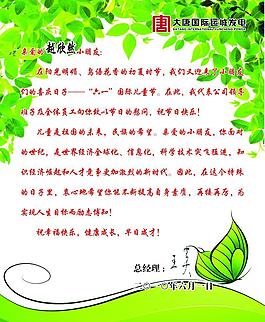 大唐国际运城发电
DATANG INTERNATIONAL YUNCHENG POWER
亲爱的赵欣然小朋友:
在阳光明媚、鸟语花香的初夏时节,我们又迎来了小朋友
们的喜庆日子——“六一”国际儿童节。在此,我代表公司领导
班子及全体员工向你致以节日的慰问,祝节日快乐!
儿童是祖国的未来,民族的希望。亲爱的小朋友,你面对
的世纪,是世界经济全球化、信息化,科学技术突飞猛进,知
识经济崛起和人才竞争更加激烈的新时代。因此,在这个特殊
的日子里,衷心地希望你能不断提高自身素质,再接再厉,为
实现人生目标而励志博知!
祝幸福快乐,健康成长,早日成才!
总经理:
二〇一〇年六月一日